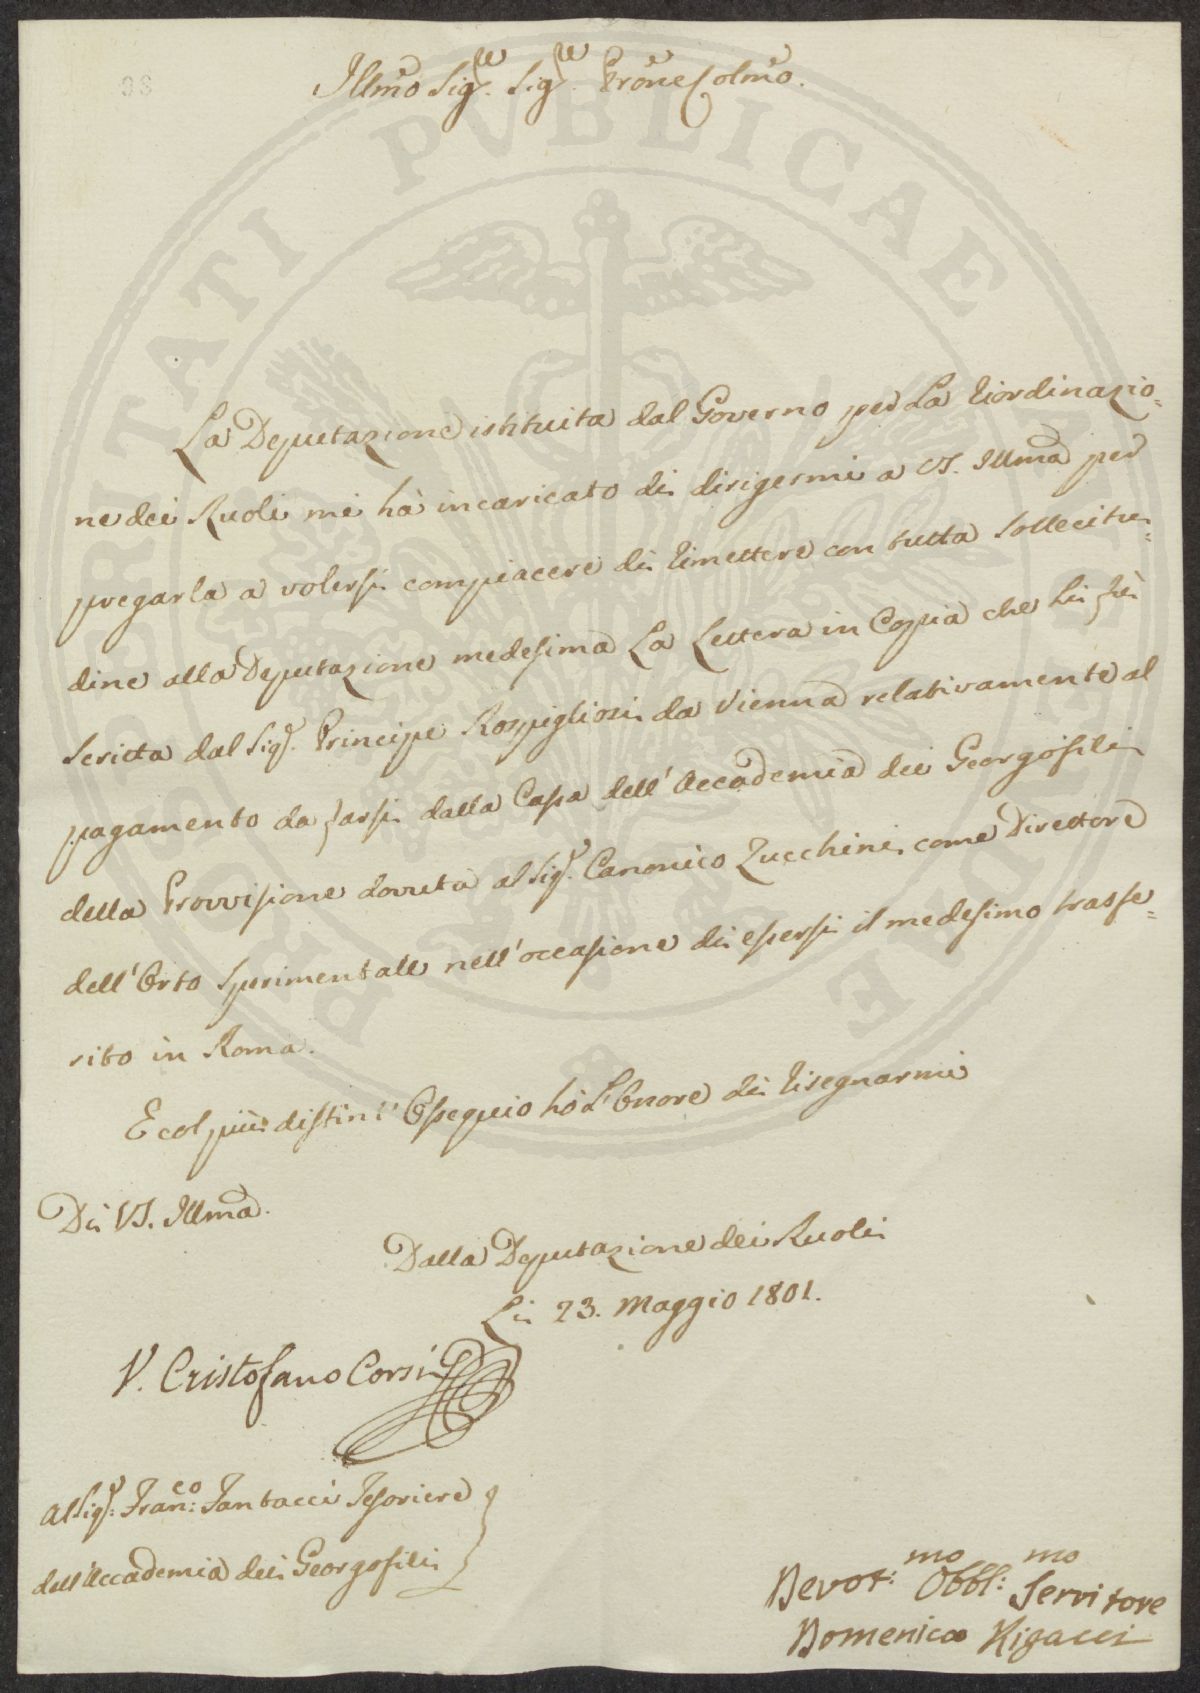 Illmo Sigre. Sigre. Prōne Colmo.
La Deputazione istituita dal Governo per La riordinazio=
ne dei Ruoli mi hà incaricato di dirigermi a VS. Illma per
pregarla a volersi compiacere di rimettere con tutta sollecitu=
dine alla Deputazione medesima La Lettera in Copia che Li fù
scritta dal Sigr. Principe Rospigliosi da Vienna relativamente al
pagamento da farsi dalla Cassa dell'Accademia dei Georgofili
della Provvisione dovuta al Sigr. Canonico Zucchini come Direttore
dell'Orto Sperimentale nell'occasione di essersi il medesimo trasfe=
rito in Roma.
E col più distint' Ossequio hò L'Onore di risegnarmi
Di VS. Illma.
Dalla Deputazione dei Ruoli
Li 23. Maggio 1801.
V. Cristofano Corsi
Al Sigr: Franco: Fantacci Tesoriere
dell'Accademia dei Georgofili
Devot:mo Obbl:mo Servitore
Domenico Rigacci
PROSPERITATI PVBLICAE AVGENDAE